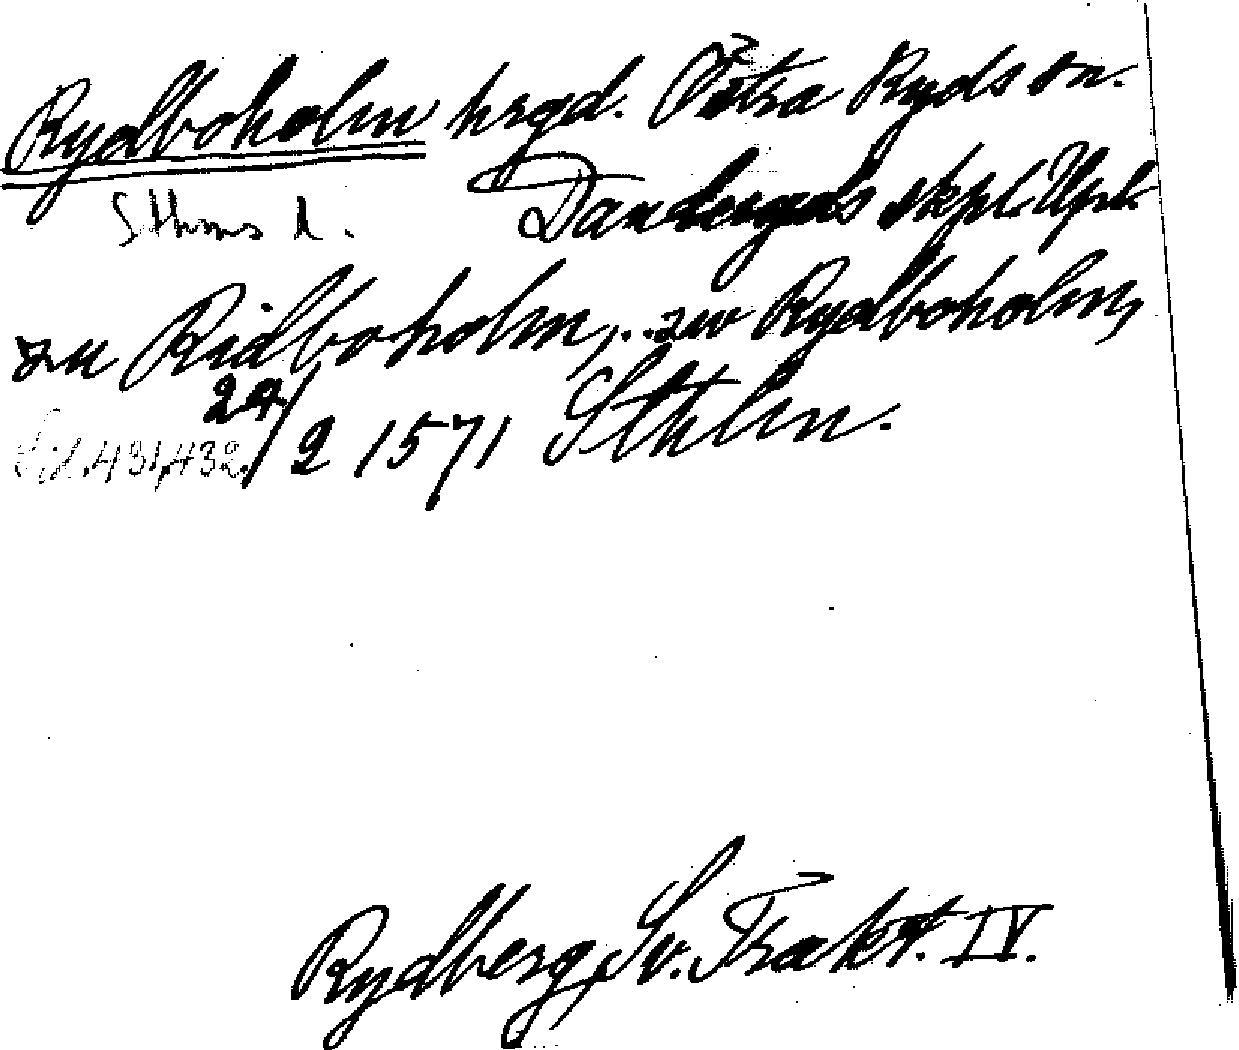 Rydboholm hrgd. Östra Ryds sn.
Sthms l. Danderyds skpl. Upl.
zu Ridboholm, .. zuv Rydboholm,
24/2 1571 Sthlm.
Sid. 431, 432.
Rydberg, Sv. Trakt. IV.